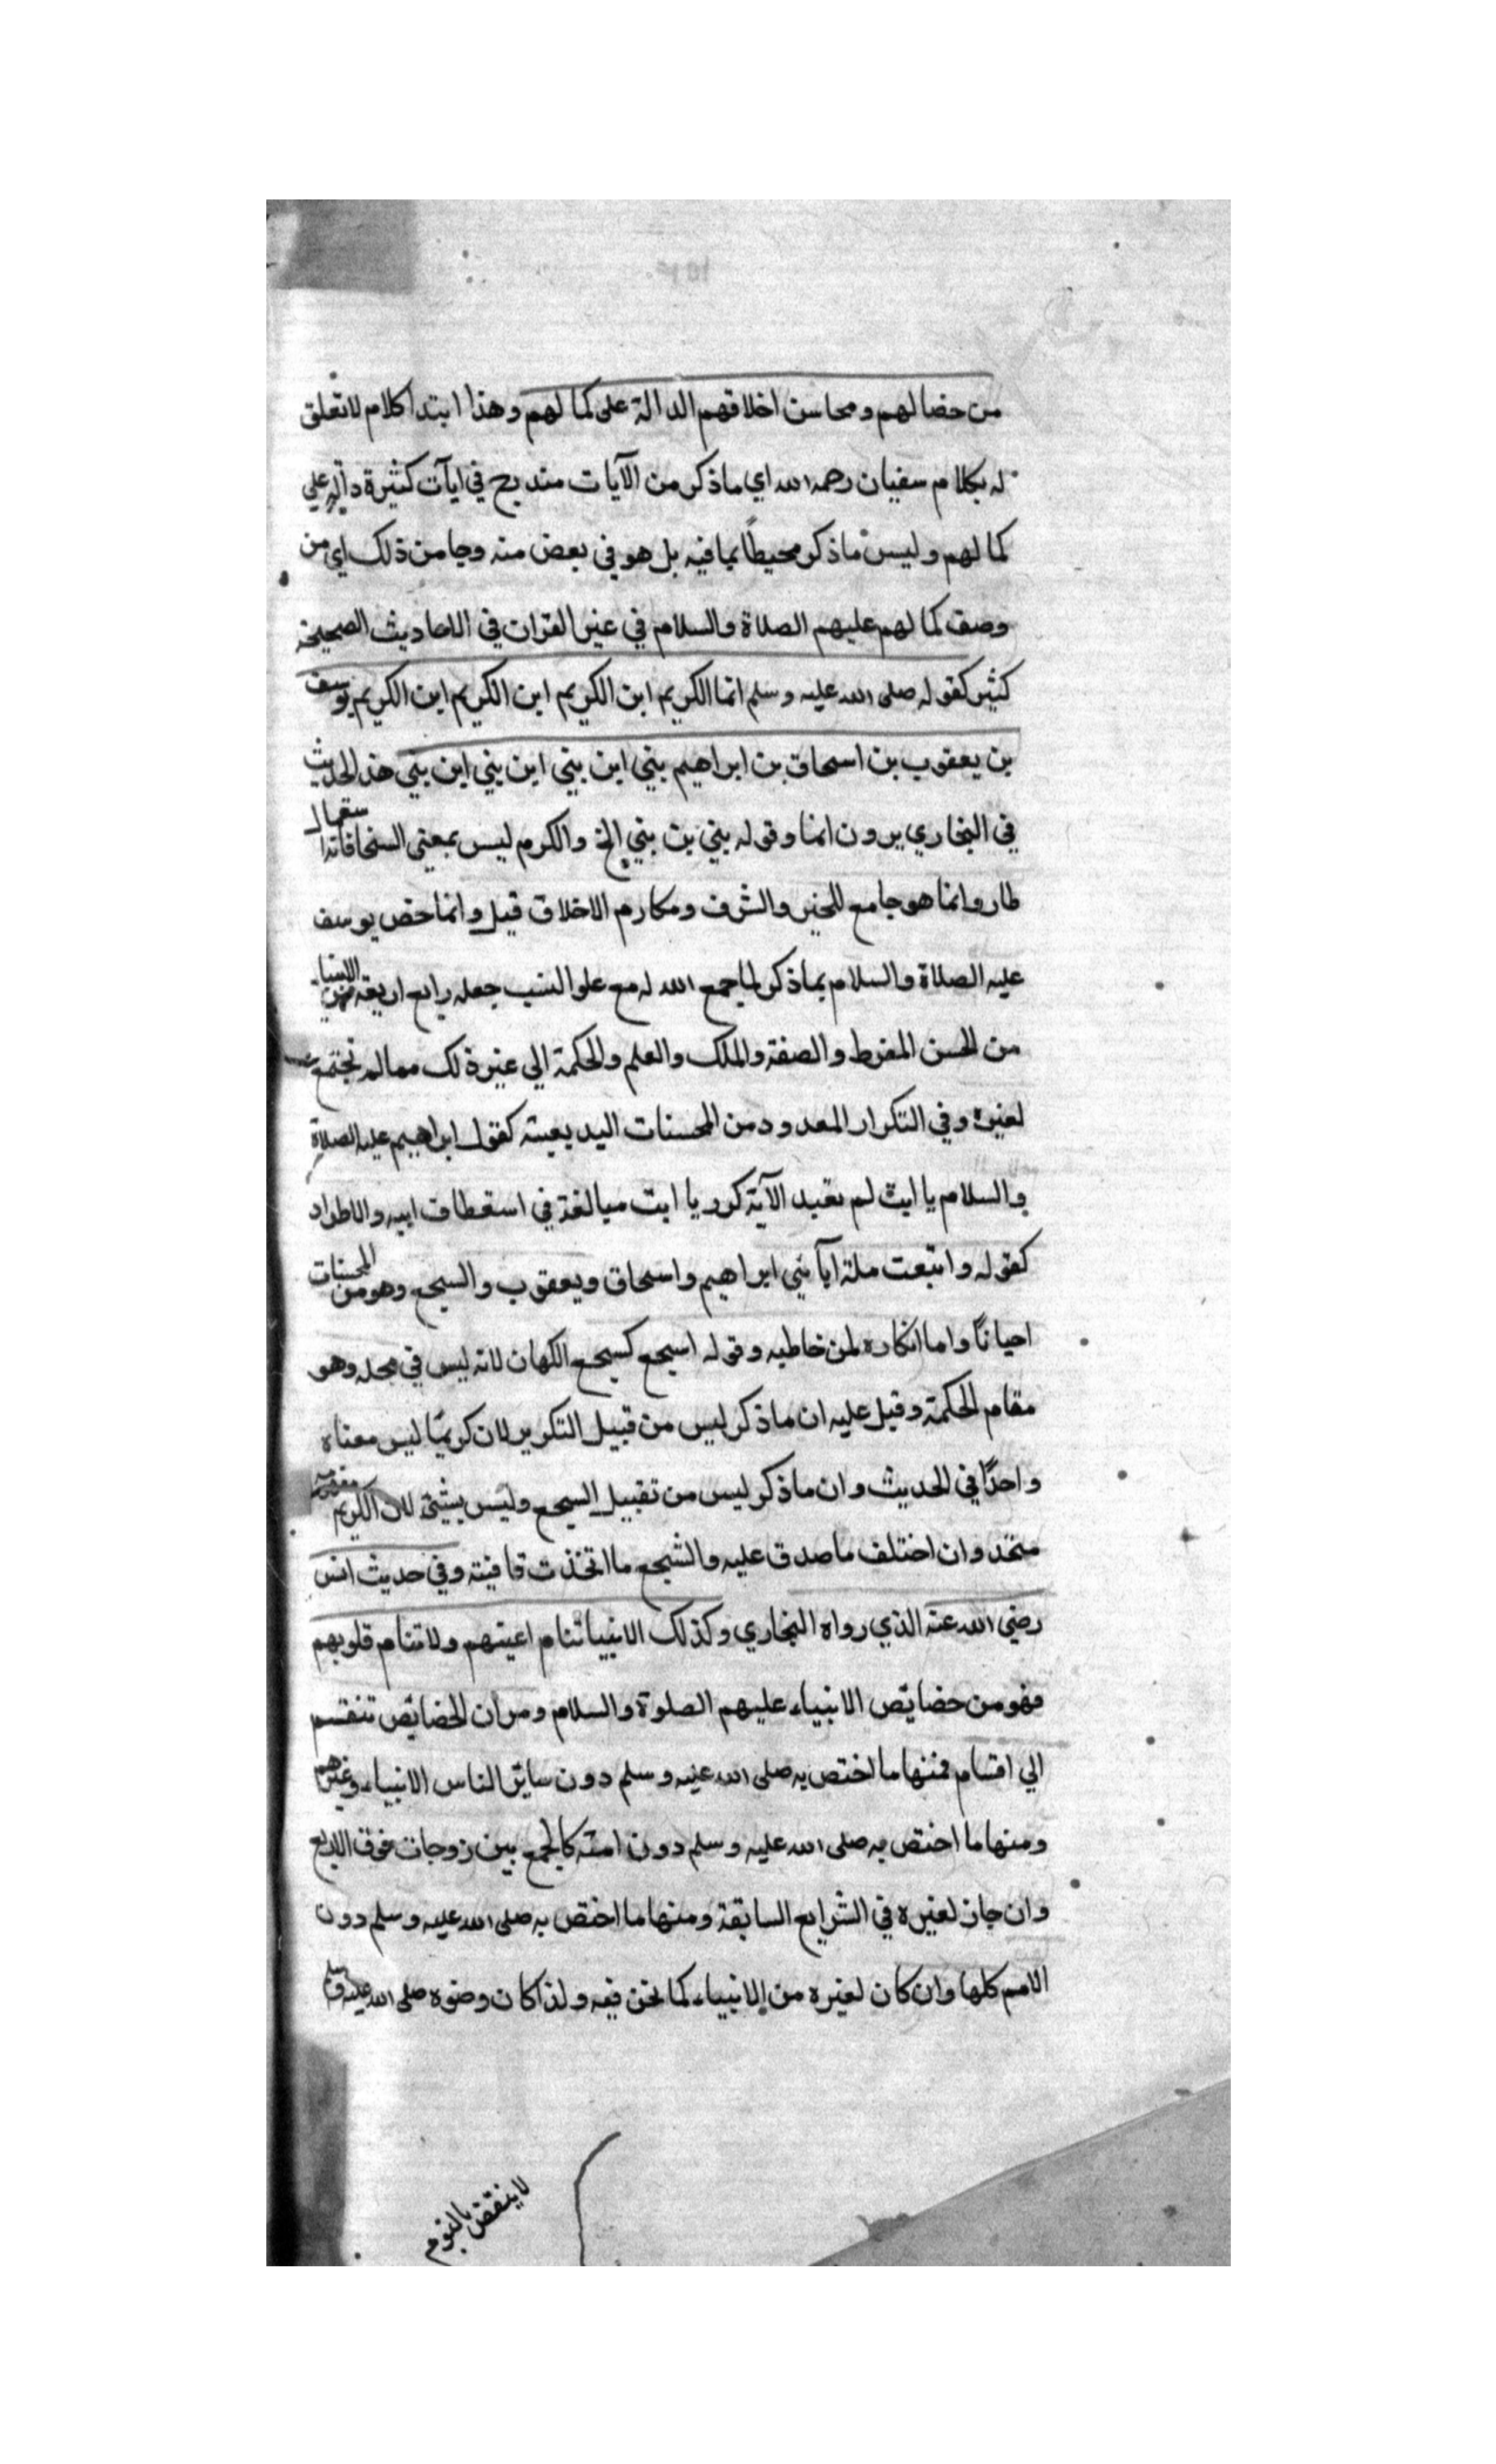 من خصالهم ومحاسن اخلاقهم الدالة على كمالهم وهذا ابتدا كلام لاتعلق
له بكلام سفيان رحمه الله اي ماذكر من الآيات مندبح في ايآت كثيرة دآلة علي
كمالهم وليس ماذكر محيطًا بمافيه بل هو في بعض منه وجا من ذلك اي من
وصف كمالهم عليهم الصلاة والسلام في غير القران في الاحاديث الصحيحة
كثير كقوله صلى الله عليه وسلم انما الكريم ابن الكريم ابن الكريم ابن الكريم يوسف
بن يعقوب بن اسحاق بن ابراهيم بني ابن بني ابن بني ابن بني هذ الحديث
في البخاري يرون انما وقوله بني بن بني الخ والكرم ليس بمعنى السخا فانه استعمال
طار وانما هو جامع للخير والشرف ومكارم الاخلاق قيل وانما خص يوسف
عليه الصلاة والسلام بماذكر لما جمع الله له مع علو النسب جعله رابع اربعة من الانبياء
من الحسن المفرط والصفة والملك والعلم والحكمة الي غير ذلك ممالم تجتمع
لغيره وفي التكرار المعدود من المحسنات اليديعية كقول ابراهيم عليه الصلاة
والسلام يا ابت لم تعبد الآية كرر يا ابت مبالغة في استعطاف ابيه والاطراد
كقوله واتبعت ملة ابآئي ابراهيم واسحاق ويعقوب والسجع وهو من المحسنات
احيانًا واما انكاره لمن خاطبه وقوله اسجع كسجع الكهان لانه ليس في محله وهو
مقام الحكمة وقيل عليه ان ماذكر ليس من قبيل التكرير لان كريمًا ليس معناه
واحدًا في الحديث وان ماذكر ليس من تقبيل السجع وليس بشيئ لان الكريم مفهومه
متحد وان اختلف ماصدق عليه والشجع ما اتخذت قافيته وفي حديث انس
رضي الله عنه الذي رواه البخاري وكذلك الانبيا تنام اعينهم ولا تنام قلوبهم
فهو من خصايص الانبياء عليهم الصلوة والسلام ومر ان الخصايص تنقسم
الي اقسام فمنها ما اختص به صلى الله عليه وسلم دون ساير الناس الانبياء وغيرهم
ومنها ما اختص به صلى الله عليه وسلم دون امته كالجمع بين زوجات فوق الاربع
وان جاز لغيره في الشرايع السابقة ومنها ما اختص به صلى الله عليه وسلم دون
الامم كلها وان كان لغيره من الانبياء كما نحن فيه ولذا كان وضوه صلى الله عليه وسلم
لاينقض بالنوم